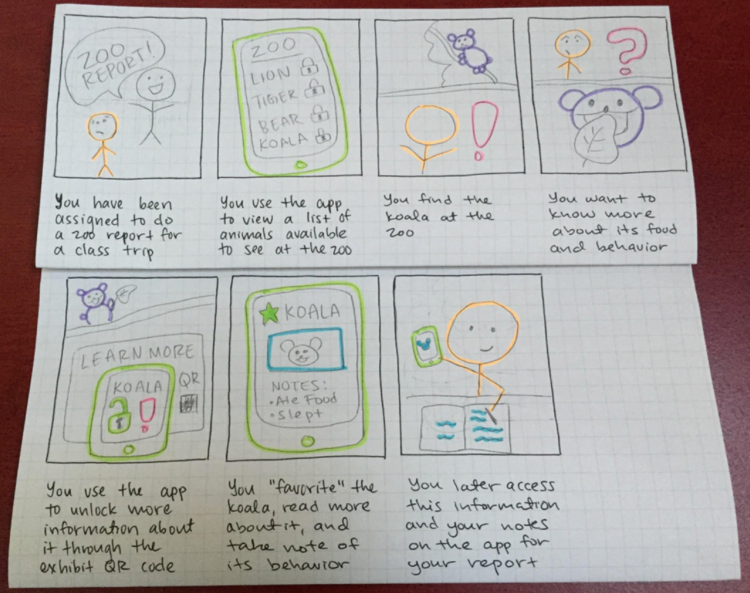 ZOO
REPORT!
You have been
assigned to do
a zoo report for
a class trip
ZOO
LION
TIGER
BEAR
KOALA
You use the app
to view a list of
animals available
to see at the zoo
!
You find the
koala at the
zoo
?
You want to
know more
about its food
and behavior
LEARN MORE
KOALA
QR
!
You use the app
to unlock more
information about
it through the
exhibit QR code
KOALA
NOTES:
• Ate Food
• Slept
You "favorite" the
koala, read more
about it, and
take note of
its behavior
You later access
this information
and your notes
on the app for
your report